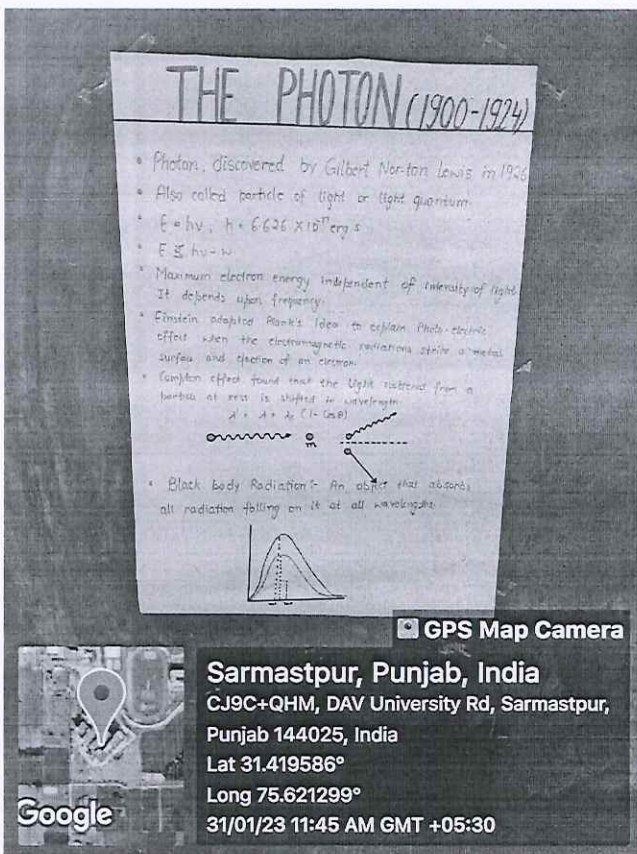 THE PHOTON (1900-1924)
• Photon, discovered by Gilbert Nor-ton Lewis in 1926
• Also called particle of light or light quantum.
• E = hν, h = 6.626 × 10⁻²⁷ erg s
• E ≤ hν - w
• Maximum electron energy independent of intensity of light
It depends upon frequency.
• Einstein adapted Plank's Idea to explain Photo-electric
effect when the electromagnetic radiations strike a metal
surface and ejection of an electron.
• Compton effect found that the light scattered from a
particle at rest is shifted in wavelength.
(1 - Cosθ)
m
• Black body Radiation:- An object that absorbs
all radiation falling on it at all wavelengths.
GPS Map Camera
Sarmastpur, Punjab, India
CJ9C+QHM, DAV University Rd, Sarmastpur,
Punjab 144025, India
Lat 31.419586°
Long 75.621299°
31/01/23 11:45 AM GMT +05:30
Google